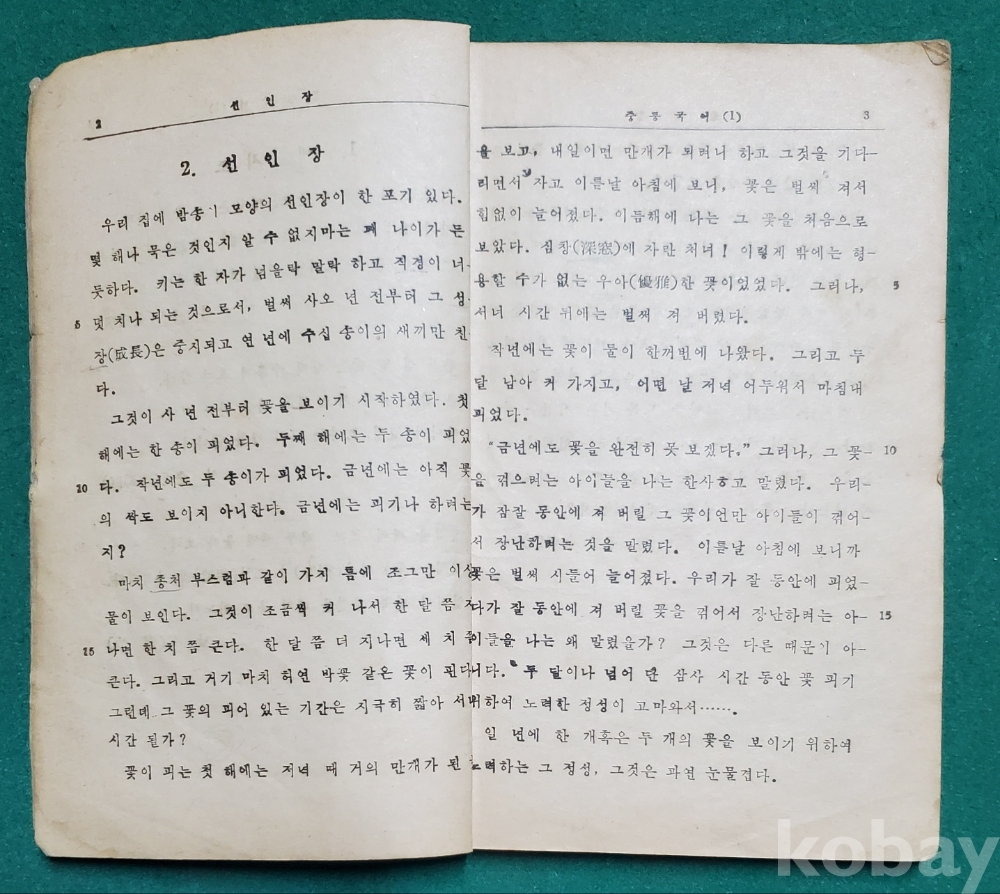 2
선 인 장
2. 선 인 장
우리 집에 밤송이 모양의 선인장이 한 포기 있다.
몇 해나 묵은 것인지 알 수 없지마는 꽤 나이가 든
듯하다. 키는 한 자가 넘을락 말락 하고 직경이 너-
5 덧 치나 되는 것으로서, 벌써 사오 년 전부터 그 성-
장(成長)은 중지되고 연 년에 수십 송이의 새끼만 친
다.
그것이 사 년 전부터 꽃을 보이기 시작하였다. 첫
해에는 한 송이 피었다. 두째 해에는 두 송이 피었
10 다. 작년에도 두 송이가 피었다. 금년에는 아직 꽃
의 싹도 보이지 아니한다. 금년에는 피기나 하려는
지?
마치 종처 부스럼과 같이 가지 틈에 조그만 이상
물이 보인다. 그것이 조금씩 커 나서 한 달 쯤 지
15 나면 한 치 쯤 큰다. 한 달 쯤 더 지나면 세 치 쯤
큰다. 그리고 거기 마치 허연 박꽃 같은 꽃이 핀다
그런데 그 꽃의 피어 있는 기간은 지극히 짧아 서너
시간 될가?
꽃이 피는 첫 해에는 저녁 때 거의 만개가 된
중 등 국 어 (1)
3
을 보고, 내일이면 만개가 되려니 하고 그것을 기다-
리면서 자고 이튿날 아침에 보니, 꽃은 벌써 져서
힘없이 늘어졌다. 이듬해에 나는 그 꽃을 처음으로
보았다. 심창(深窓)에 자란 처녀! 이렇게 밖에는 형-
용할 수가 없는 우아(優雅)한 꽃이었었다. 그러나, 5
서너 시간 뒤에는 벌써 져 버렸다.
작년에는 꽃이 물이 한꺼번에 나왔다. 그리고 두
달 남아 커 가지고, 어떤 날 저녁 어두워서 마침내
피었다.
“금년에도 꽃을 완전히 못 보겠다.” 그러나, 그 꽃- 10
을 꺾으려는 아이들을 나는 한사하고 말렸다. 우리-
가 잠잘 동안에 져 버릴 그 꽃이언만 아이들이 꺾어-
서 장난하려는 것을 말렸다. 이튿날 아침에 보니까
꽃은 벌써 시들어 늘어졌다. 우리가 잘 동안에 피었-
다가 잘 동안에 져 버릴 꽃을 꺾어서 장난하려는 아- 15
이들을 나는 왜 말렸을가? 그것은 다른 때문이 아-
니다. 두 달이나 넘어 단 삼사 시간 동안 꽃 피기
위하여 노력한 정성이 고마와서…….
일 년에 한 개혹은 두 개의 꽃을 보이기 위하여
노력하는 그 정성, 그것은 과연 눈물겹다.
kobay